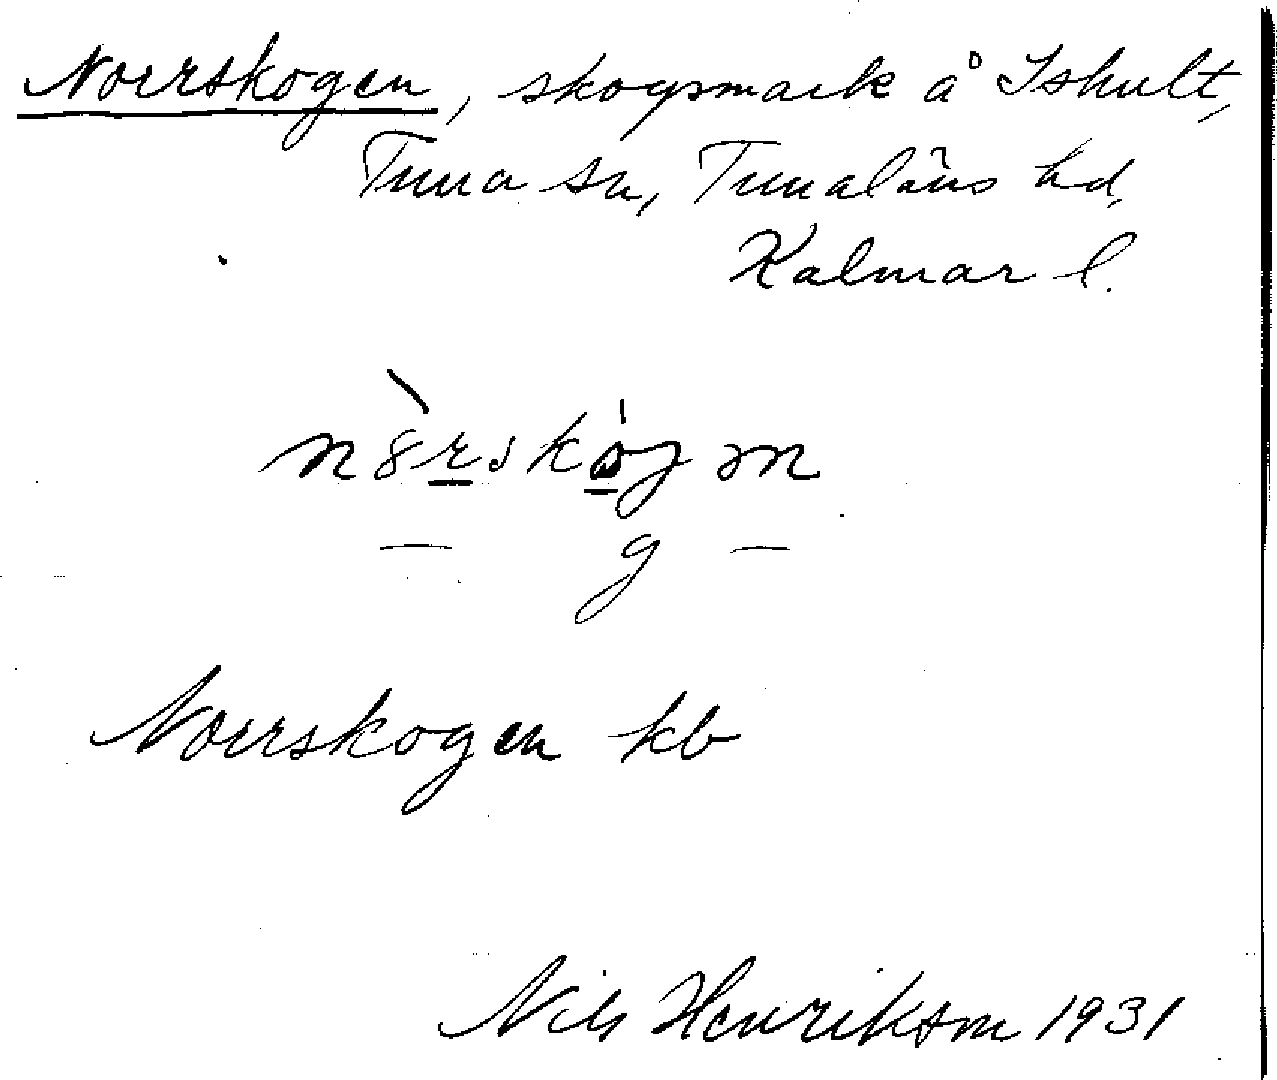 Norrskogen, skogsmark å Ishult,
Tuna sn, Tunaläns hd,
Kalmar l.
Norrskogen kb
Nils Henrikson 1931